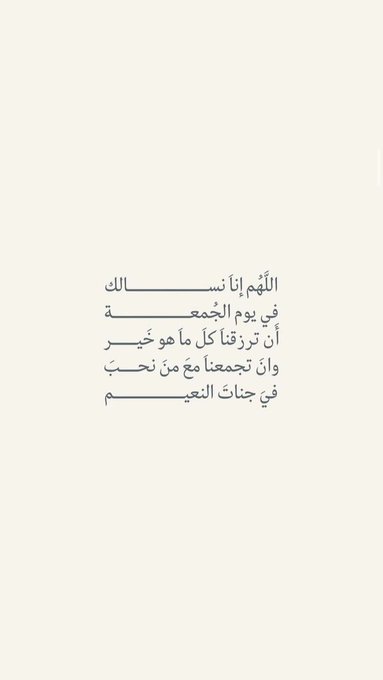 اللَّهُم إناَ نســـــــــــــــالك
في يوم الجُمعـــــــــــــــة
أَن ترزقناَ كلَ ماَ هو خَيـــــر
وانَ تجمعناَ معَ منَ نحـــبَ
فيَ جناتَ النعيــــــــــــــم